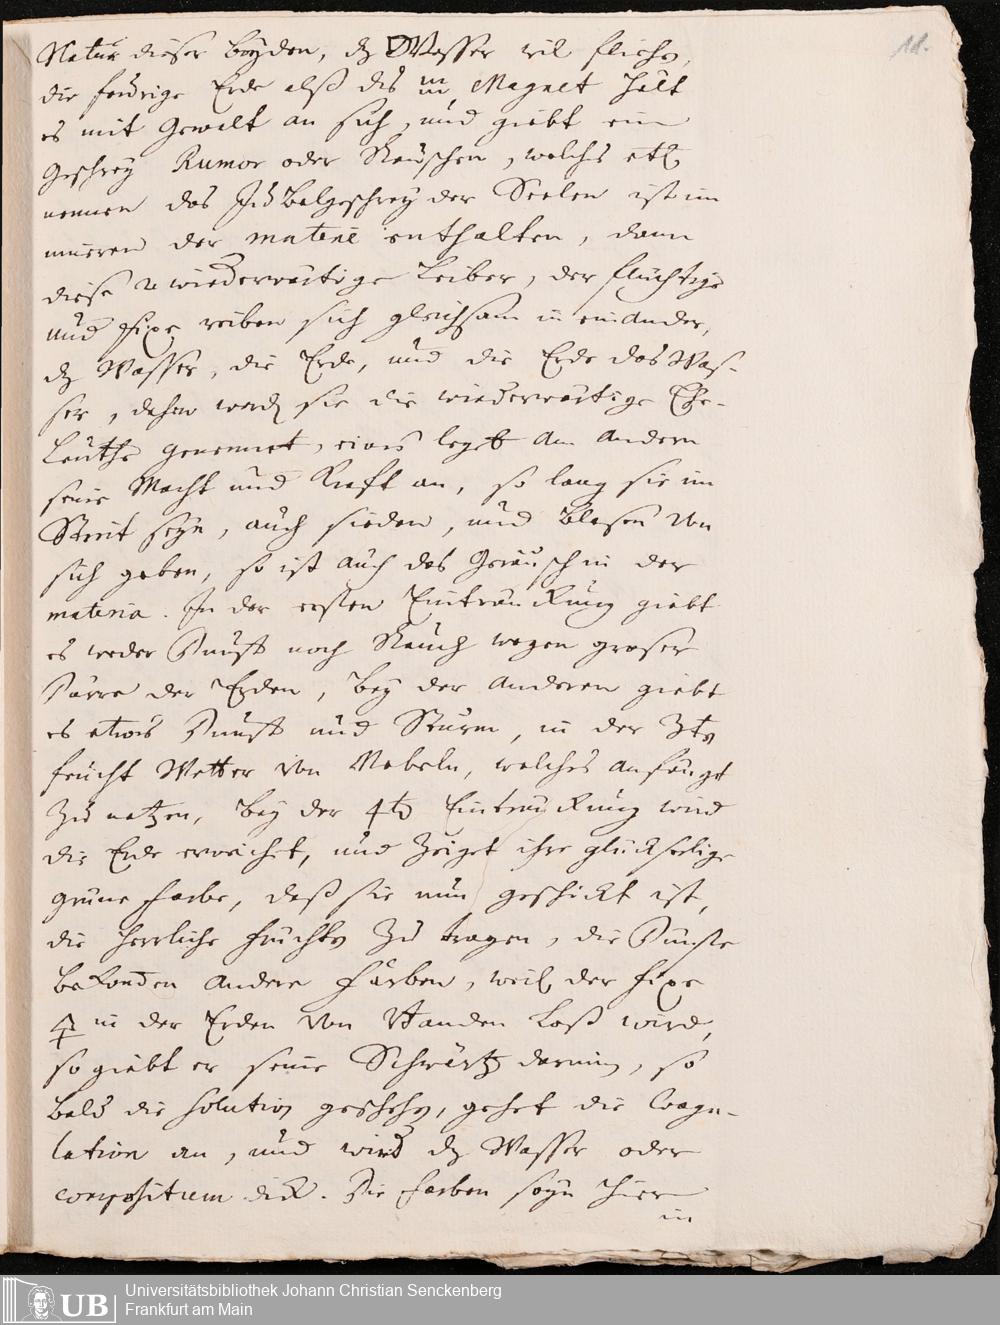 11.
Natur dieser beyden, dz Wasser wil fliehen,
die feurige Erde alß des Magnet hält
es mit Gewalt an sich, und giebt ein
Geschrey Rumor oder Rauschen, welches etl.
nennen das Jubelgeschrey der Seelen ist im
inneren der materie enthalten, dann
diese 2 wiederwärtige Leiber, der fluchtige
und fixe reiben sich gleichsam in einander,
dz Wasser, die Erde, und die Erde das Was-
ser, daher werden sie die wiederwärtige Ehe-
Leuthe genennet, eines legt am andern
seine Macht und Krafft an, so lang sie im
Streit seyn, auch sieden, und blasen von
sich geben, so ist auch das Geräusch in der
materia. In der ersten Einträuckung giebt
es weder Dunst noch Rauch wegen groser
Dürre der Erden, bey der anderen giebt
es etwas Dunst und Sturm, in der 3ten
feucht Wetter von Nebeln, welches anfänget
zu netzen, bey der 4ten Einträuckung wird
die Erde erweichet, und zeiget ihre glückseelige
grüne Farbe, daß sie nun geschickt ist,
die herrliche Früchte zu tragen, die Dünste
bekommen andere Farben, weil der fixe
🜍 in der Erden von Banden Loß wird,
so giebt er seine Schwärtz darein, so
bald die Solution geschehen, gehet die Coagu-
lation an, und wird dz Wasser oder
compositum dick. Die Farben seyn hier
in
UB
Universitätsbibliothek Johann Christian Senckenberg
Frankfurt am Main